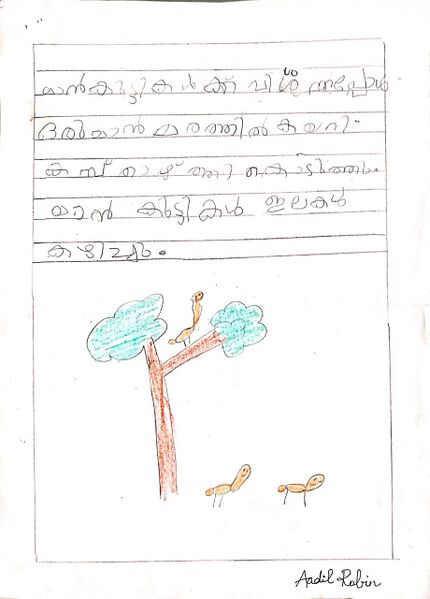 മാൻകുട്ടികൾക്ക് വിശന്നപ്പോൾ
ഒരുമാൻ മരത്തിൽ കയറി
കമ്പ് താഴ്ത്തി കൊടുത്തു.
മാൻ കുട്ടികൾ ഇലകൾ
കഴിച്ചു.
Aadil Robin